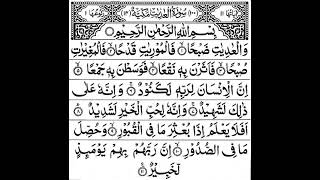 سُوْرَةُ الْعٰدِيٰتِ مَكِّيَّةٌ
بِسْمِ اللّٰهِ الرَّحْمٰنِ الرَّحِيْمِ
وَالْعٰدِيٰتِ ضَبْحًا ۙ فَالْمُوْرِيٰتِ قَدْحًا ۙ فَالْمُغِيْرٰتِ
صُبْحًا ۙ فَاَثَرْنَ بِهٖ نَقْعًا ۙ فَوَسَطْنَ بِهٖ جَمْعًا ۙ
اِنَّ الْاِنْسَانَ لِرَبِّهٖ لَكَنُوْدٌ ۚ وَاِنَّهٗ عَلٰى
ذٰلِكَ لَشَهِيْدٌ ۚ وَاِنَّهٗ لِحُبِّ الْخَيْرِ لَشَدِيْدٌ ؕ
اَفَلَا يَعْلَمُ اِذَا بُعْثِرَ مَا فِى الْقُبُوْرِ ۙ وَحُصِّلَ
مَا فِى الصُّدُوْرِ ۙ اِنَّ رَبَّهُمْ بِهِمْ يَوْمَئِذٍ
لَّخَبِيْرٌ